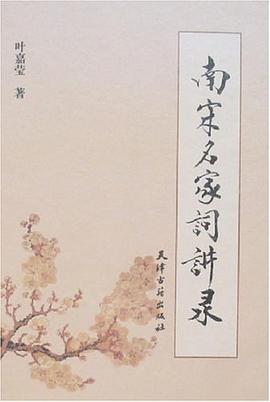 叶嘉莹 著
南宋名家詞講录
天津古籍出版社